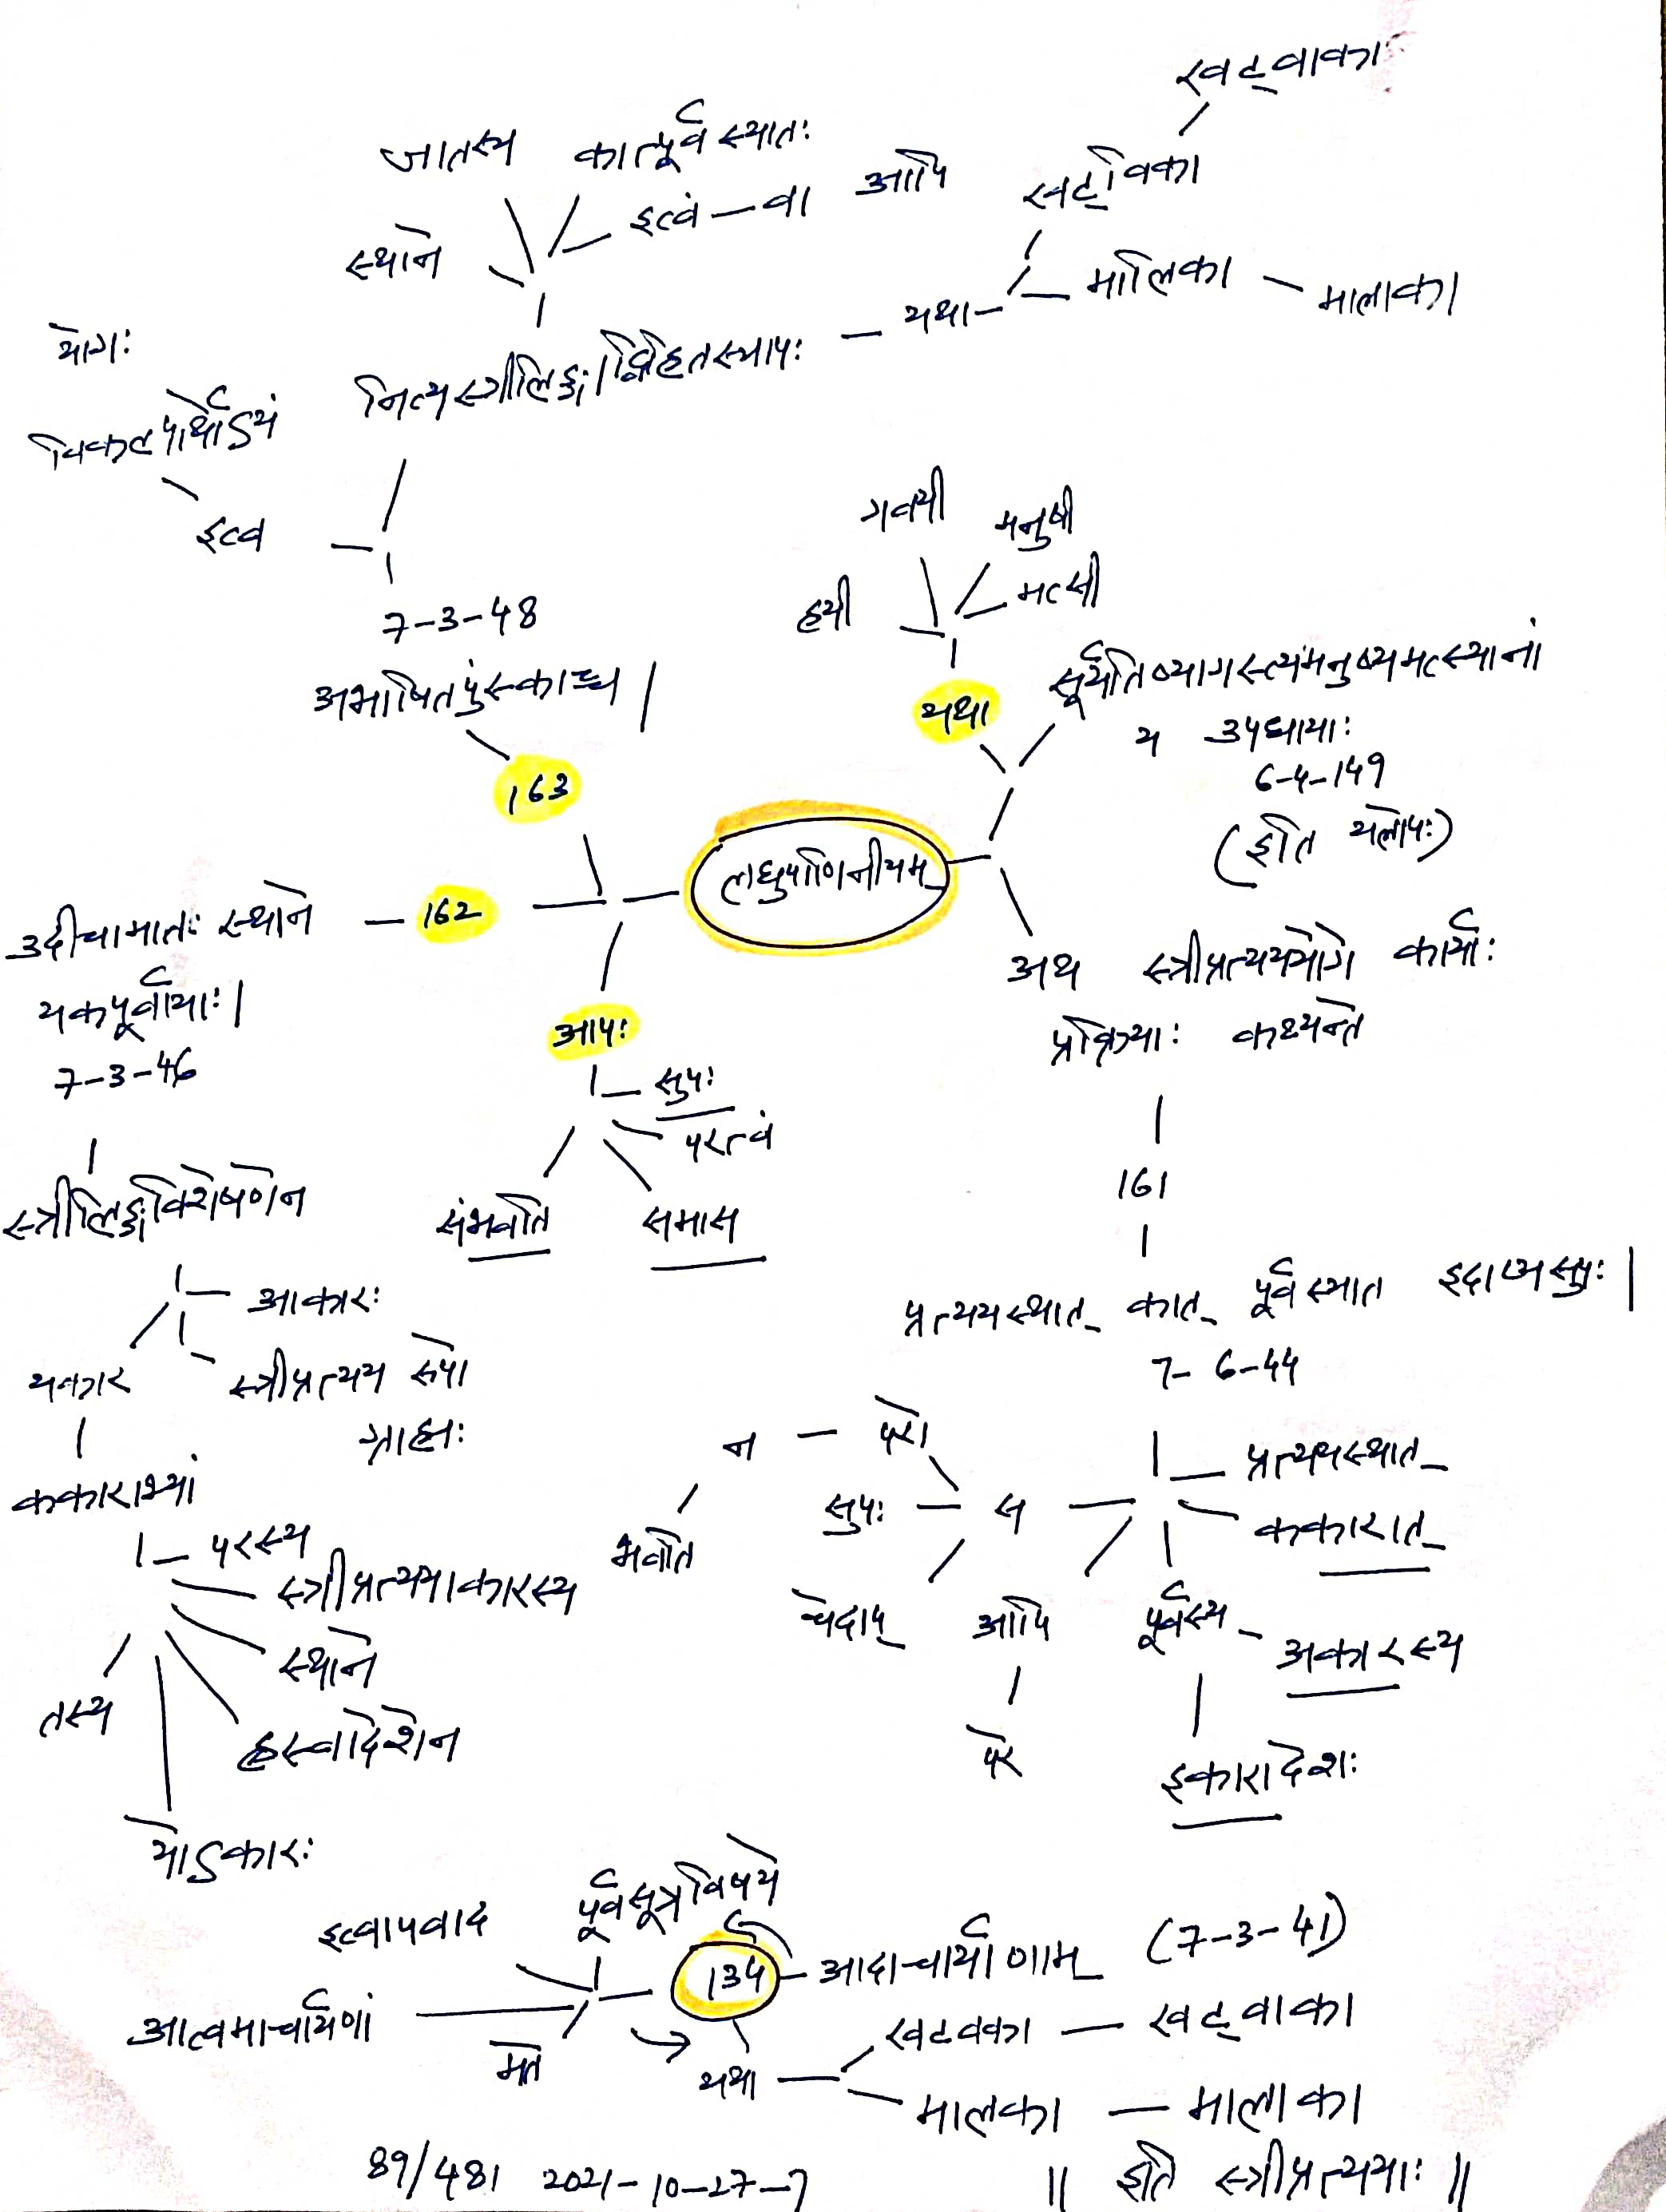 खट्वाका
जातस्य कात्पूर्व स्यातः
स्थाने इत्वं — वा अपि खट्विका
यथा — मालिका — मालाका
योगः
विकल्पार्थोऽयं नित्यस्त्रीलिङ्गाद्विहितस्यापः
इत्व
7-3-48
अभाषितपुंस्काच्च |
163
गवयी मनुषी
हयी मत्सी
यथा सूर्यतिष्यागस्त्यमनुष्यमत्स्यानां
य उपधायाः
6-4-149
(इति यलोपः)
लघुपाणिनीयम्
उदीचामातः स्थाने — 162
यकपूर्वायाः |
7-3-46
अथ स्त्रीप्रत्यययोगे कार्याः
प्रक्रियाः कथ्यन्ते
आपः
सुपः
परत्वं
संभवति समास
161
प्रत्ययस्थात् कात् पूर्वस्यात इदाप्यसुपः |
7-6-44
स्त्रीलिङ्गविशेषणेन
आकारः
यकार स्त्रीप्रत्यय रूपो
ग्राह्यः
ककाराभ्यां
परस्य
स्त्रीप्रत्ययाकारस्य
स्थाने
तस्य ह्रस्वादेशेन
योऽकारः
न — परो प्रत्ययस्थात्
सुपः — स ककारात्
भवति चेदाप् अपि पूर्वस्य — अकारस्य
परे इकारादेशः
इत्वापवाद पूर्वसूत्रविषये
134 आदाचार्याणाम् (7-3-41)
आत्वमाचार्याणां मते
यथा खटवका — खट्वाका
मालका — मालाका
89/481 2021-10-27-7 || इति स्त्रीप्रत्ययाः ||